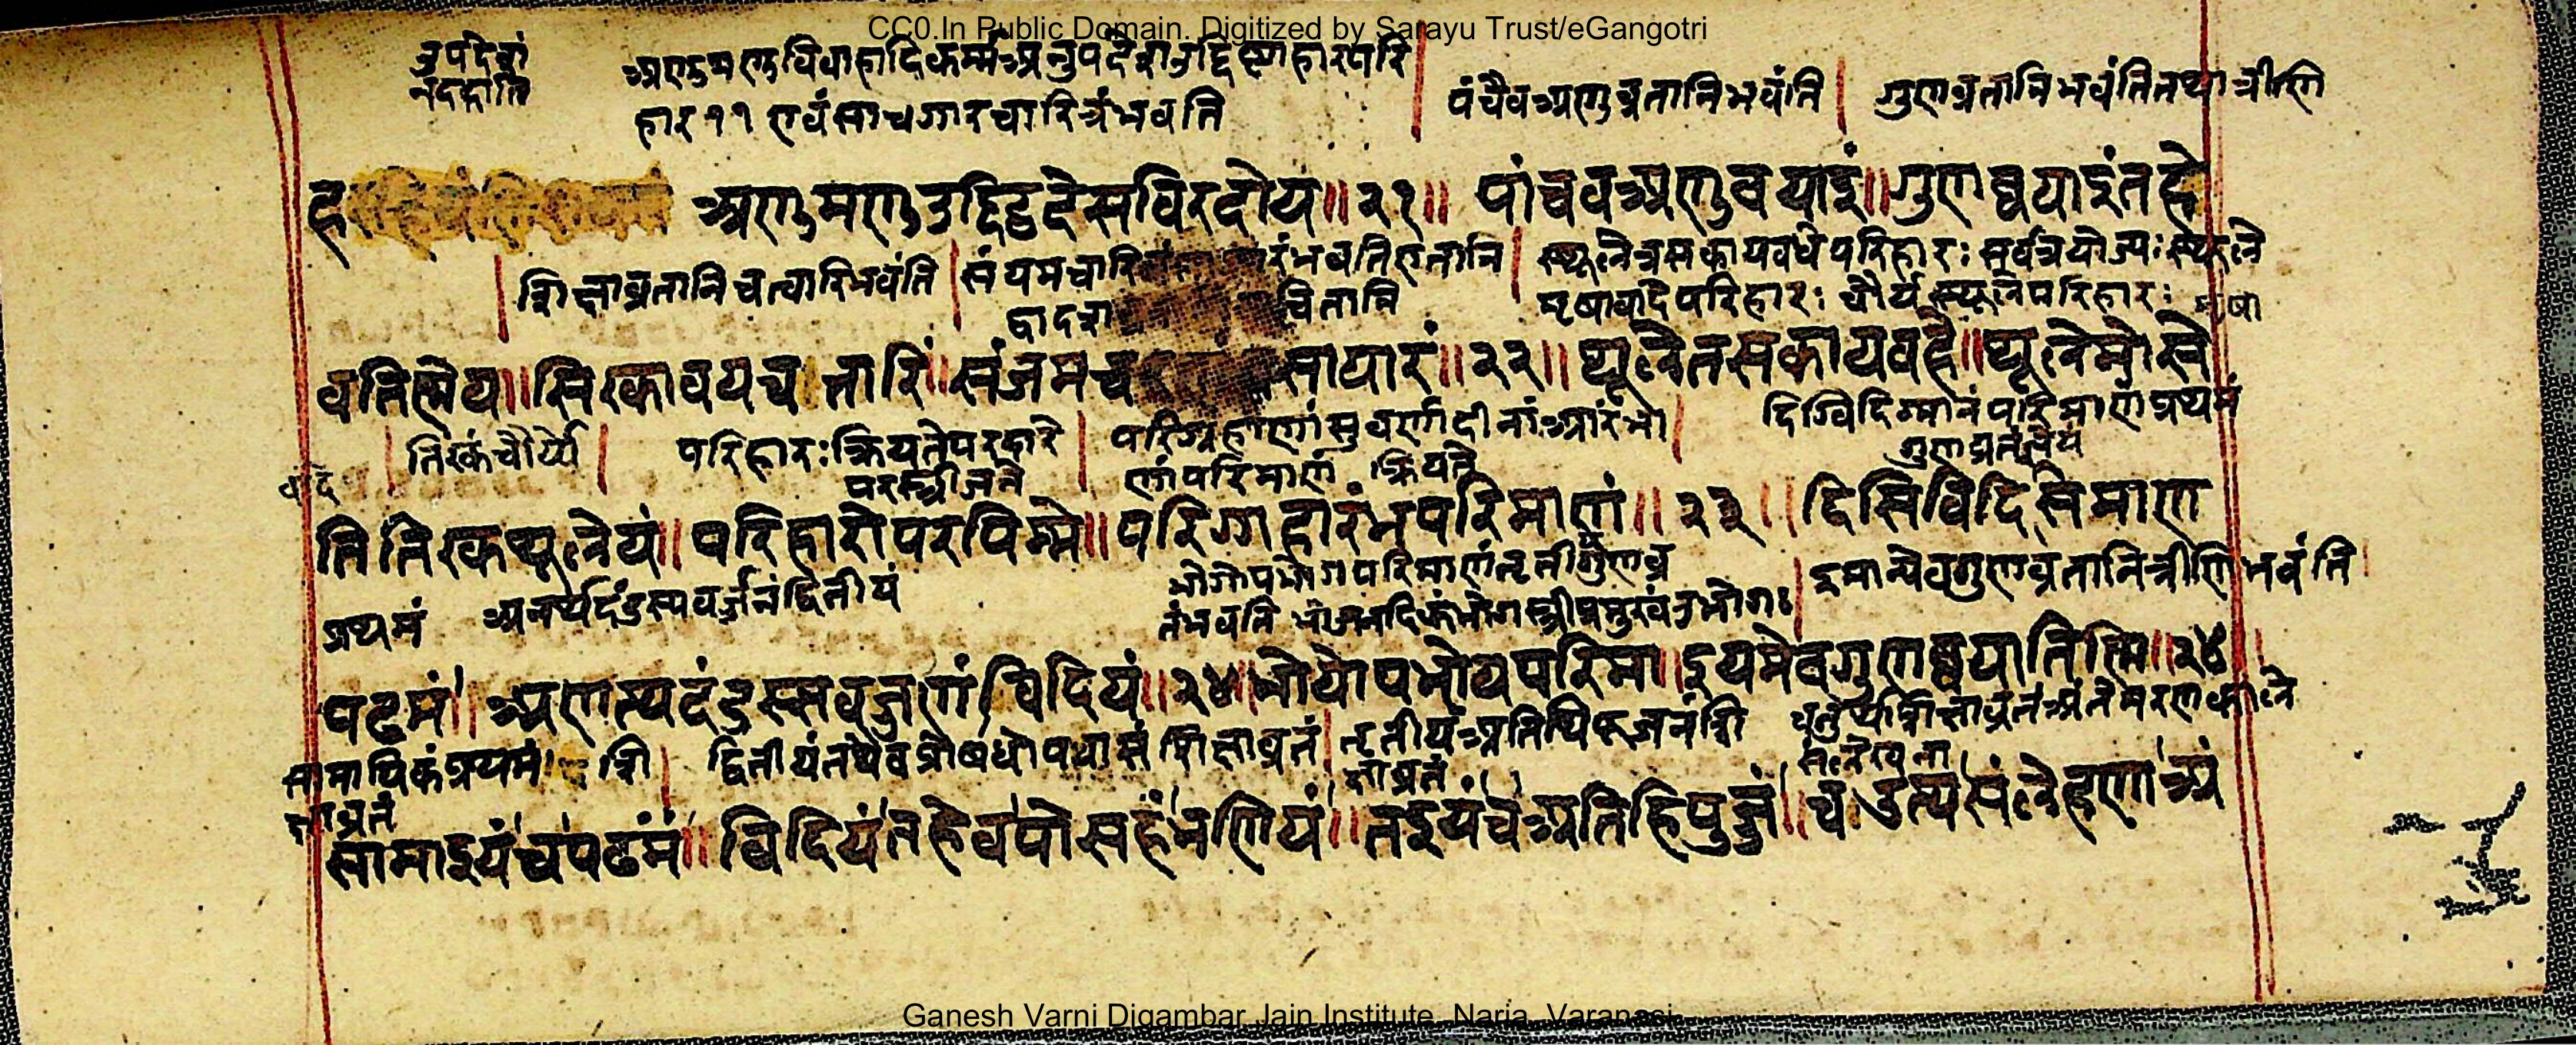 CC0.In Public Domain. Digitized by Sarayu Trust/eGangotri
उपदेशं
नददाति
अणुमणुविवाहादिकर्म्मअनुपदेशउद्दिष्टाहारपरि
हार ११ एवं सा चगारचारित्रंभवति
पंचैवअणुव्रतानिभवंति
गुणव्रतानिभवंतितथात्रीणि
अणुमणुउद्दिट्ठदेसविरदोय॥२१॥ पांचवअणुवयाइं॥गुणव्वयाइंतह्हे
शिक्षाव्रतानिचत्वारिभवंति
संयमचारि
रंभवतिएतानि
स्थूलेत्रसकायवधेपरिहारः सर्वत्रयोज्यः स्थूले
द्वादश
चितानि
मृषावादेपरिहारः चौर्यस्थूलेपरिहारः मृषा
वतितिण्णेय॥सिरकावयचत्तारि॥संजमच
सायारं॥२२॥थूलेतसकायवहे॥थूलेमोसे
वादे
तिरकंचौर्ये
परिहारः क्रियतेपरदारे
परस्त्रीजने
परिग्रहाणांसुवर्णादीनांआरंभा
णांपरिमाणं क्रियते
दिग्विदिग्मानंपरिमाणंप्रथमं
गुणव्रतंज्ञेयं
तितिरकथूलेयं॥परिहारोपरपिम्मे॥परिग्गहारंभपरिमाणं॥२३॥दिसिविदिसिमाण
प्रथमं
अनर्थदंडस्यवर्जनंद्वितीयं
भोगोपभोगपरिमाणंतृतीगुणव्र
तंभवति भोजनादिकंभोगस्त्रीप्रमुखंउपभोगः
इमान्येवगुणव्रतानित्रीणिभवंति
पढमं॥अणत्थदंडस्सवज्जणंविदियं॥२४॥भोयोपभोयपरिमा॥इयमेवगुणव्वयातिण्णि॥२४॥
सामायिकंप्रथमं शि
क्षाव्रतं
द्वितीयंतथैवप्रोषधोपवासं शिक्षाव्रतं
तृतीयंअतिथिपूजनंशि
क्षाव्रतं
चतुर्थशिक्षाव्रतंअंतेमरणकाले
सलेखना
सामाइयंचपढमं॥विदियंतहेवपोसहंभणियं॥तइयंचअतिहिपुज्जं॥चउत्थसंलेहणाअं
Ganesh Varni Digambar Jain Institute, Naria, Varanasi